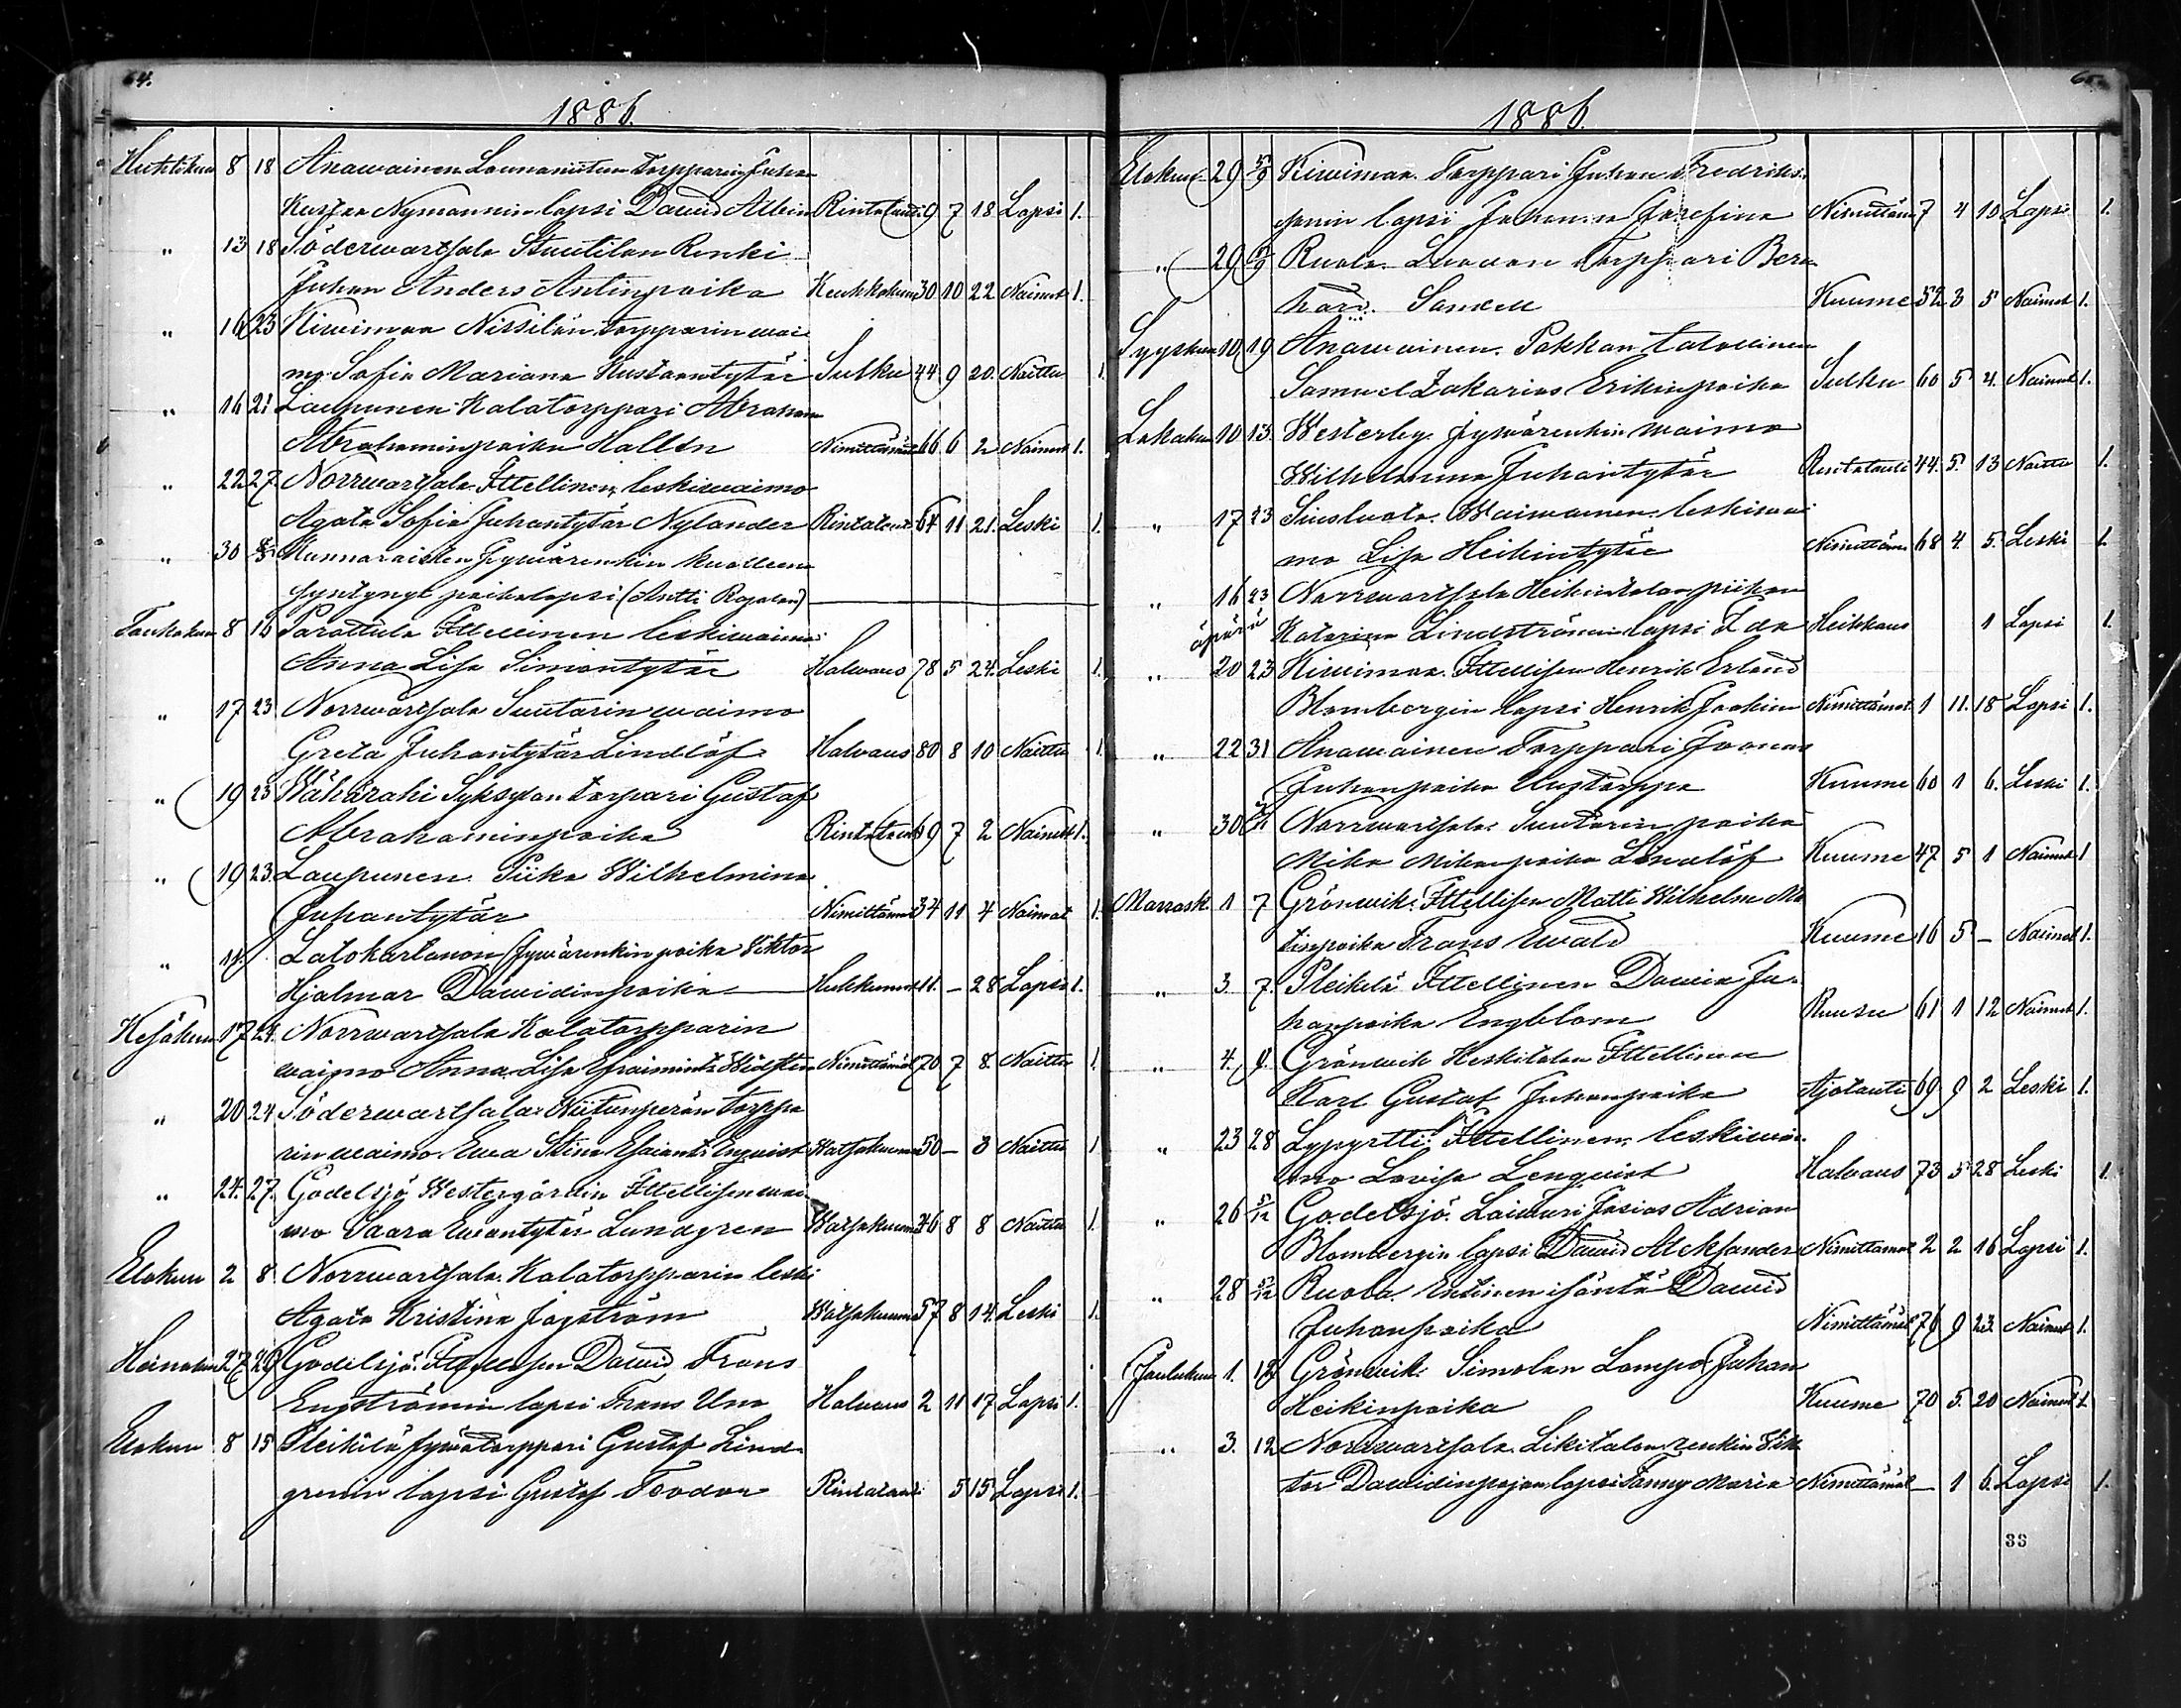 64.
1886.
Huhtikuu 8 18 Anawainen Lounaniitun torpparin Juha
Kustaa Nymannin lapsi Dawid Albin Rintatauti 9 7 18 Lapsi 1.
" 13 18 Söderwartsala Renki
Juhan Anders Antinpoika Keuhkokuume 30 10 22 Nainut 1.
" 16 23 Kiwimaa Nissilän torpparin wai
mo Sofia Mariana Kustaantytär Sulku 44 9 20. Naittu 1.
" 16 21 Laupunen Kalatorppari Abraham
Abrahaminpoika Hallen Nimittämät 66 6 2 Nainut 1.
" 22 27. Norrwartsala Ittellinen leskiwaimo
Agata Sofia Juhantytär Nylander Rintatauti 64 11 21. Leski 1.
" 30 Kunnaraisten Jyywärenkin kuolleena
syntynyt poikalapsi (Antti Rajalan)
Toukokuu 8 16 Parattula Ittellinen leskiwaimo
Anna Lisa Simontytär Halwaus 78 5 24. Leski 1.
" 17 23. Norrwartsala Suutarin waimo
Greta Juhantytär Lindlöf Halwaus 80 8 10 Naittu 1.
" 19 23 Wähärahi Syksyton torpari Gustaf
Abrahaminpoika Rintatauti 69 7 2 Nainut 1.
" 19 23. Laupunen Piika Wilhelmina
Juhantytär Nimittämät 34 11 4 Naimat 1.
" 11 Latokartanon Jywärenkin poika Viktor
Hjalmar Dawidinpoika Hukkunut 11. – 28 Lapsi 1.
Kesäkuu 17 24. Norrwartsala Kalatorpparin
waimo Anna Lisa Efraimint. Nimittämät 70 7 8. Naittu 1.
" 20 24 Söderwartsala Niitunperän torppa
rin waimo Ewa Stina Esaiant. Enqvist Watsakuume 50 – 3 Naittu 1
" 24. 27. Godelsjö Westergårdin Ittellisen wai
mo Saara Ewantytär Lundgren Watsakuume 46 8 8 Naittu 1.
Elokuu 2 8. Norrwartsala Kalatorpparin leski
Agata Kristina Jagström Watsakuume 57 8 14. Leski 1.
Heinakuu 27 29 Godelsjö. Ittellisen Dawid Frans
Engströmin lapsi Frans Uno Halwaus 2 11 17 Lapsi 1.
Elokuu 8 15 Pleikilä Gustaf Lind
grenin lapsi Gustaf Teodor Rintatauti 5 15 Lapsi 1.
65.
1886.
Elokuu 29 5/9 Kiwimaa Torppari Juhan Fredriks
sonin lapsi Johanna Josefina Nimittämä 7 4 10 Lapsi 1.
" 29 5/9 Ruola Torppari Bern
hard Sandell Kuume 52 3 5 Nainut 1.
Syyskuu 10 19 Anawainen Pokkan talollinen
Samuel Zakarias Erikinpoika Sulku 60 5 4. Nainut 1.
Lokakuu 10 13 Westerby Jywärenkin waimo
Wilhelmina Juhantytär Rintatauti 44. 5. 13 Naittu 1.
" 17 23 Siusluoto Waiwainen leskiwai
mo Lisa Heikintytär Nimittämä 68 4. 5. Leski 1.
" 16 23 Norrwartsala Heikintalon piikan
äpärä Katarina Lindströmin lapsi Ida Heikkous 1 Lapsi 1.
" 20 23 Kiwimaa Ittellisen Henrik Erland
Blombergin lapsi Henrik Joakim Nimittämät 1 11. 18 Lapsi 1.
" 22 31 Anawainen Torppari Joonas
Juhanpoika Uustorppa Kuume 60 1 6. Leski 1.
" 30 Norrwartsala Suutarin poika
Mika Mikanpoika Lindlöf Kuume 47 5 1 Nainut 1
Marrask 1 7 Grönwik Ittellisen Matti Wilhelm Ma
tinpoika Frans Ewald Kuume 16 5 – Naimat 1.
" 3. 7. Pleikilä Ittellinen Dawid Ju
hanpoika Engblom Ruusu 61 1 12 Nainut 1.
" 4. 9. Grönwik Keskitalon Ittellinen
Karl Gustaf Juhanpoika Ajotauti 69 9 2 Leski 1.
" 23 28 Lypyrtti Ittellinen leskiwai
mo Lovisa Lenqvist Halvaus 73 5 28 Leski 1.
" 26 5/12 Godelsjö. Laiwuri Josias Adrian
Blombergin lapsi Dawid Aleksander Nimittämät 2 2 16 Lapsi 1.
" 28 5/12 Ruola Entinen isäntä Dawid
Juhanpoika Nimittämät 76 9 23. Nainut 1.
Joulukuu 1. 12 Grönwik Simolan Lampo Juhan
Heikinpoika Kuume 70 5. 20 Nainut 1.
" 3. 12 Norrwartsala Likitalon renkin Wik
tor Dawidinpojan lapsi Fanny Maria Nimittämät – 1 6. Lapsi 1.
33